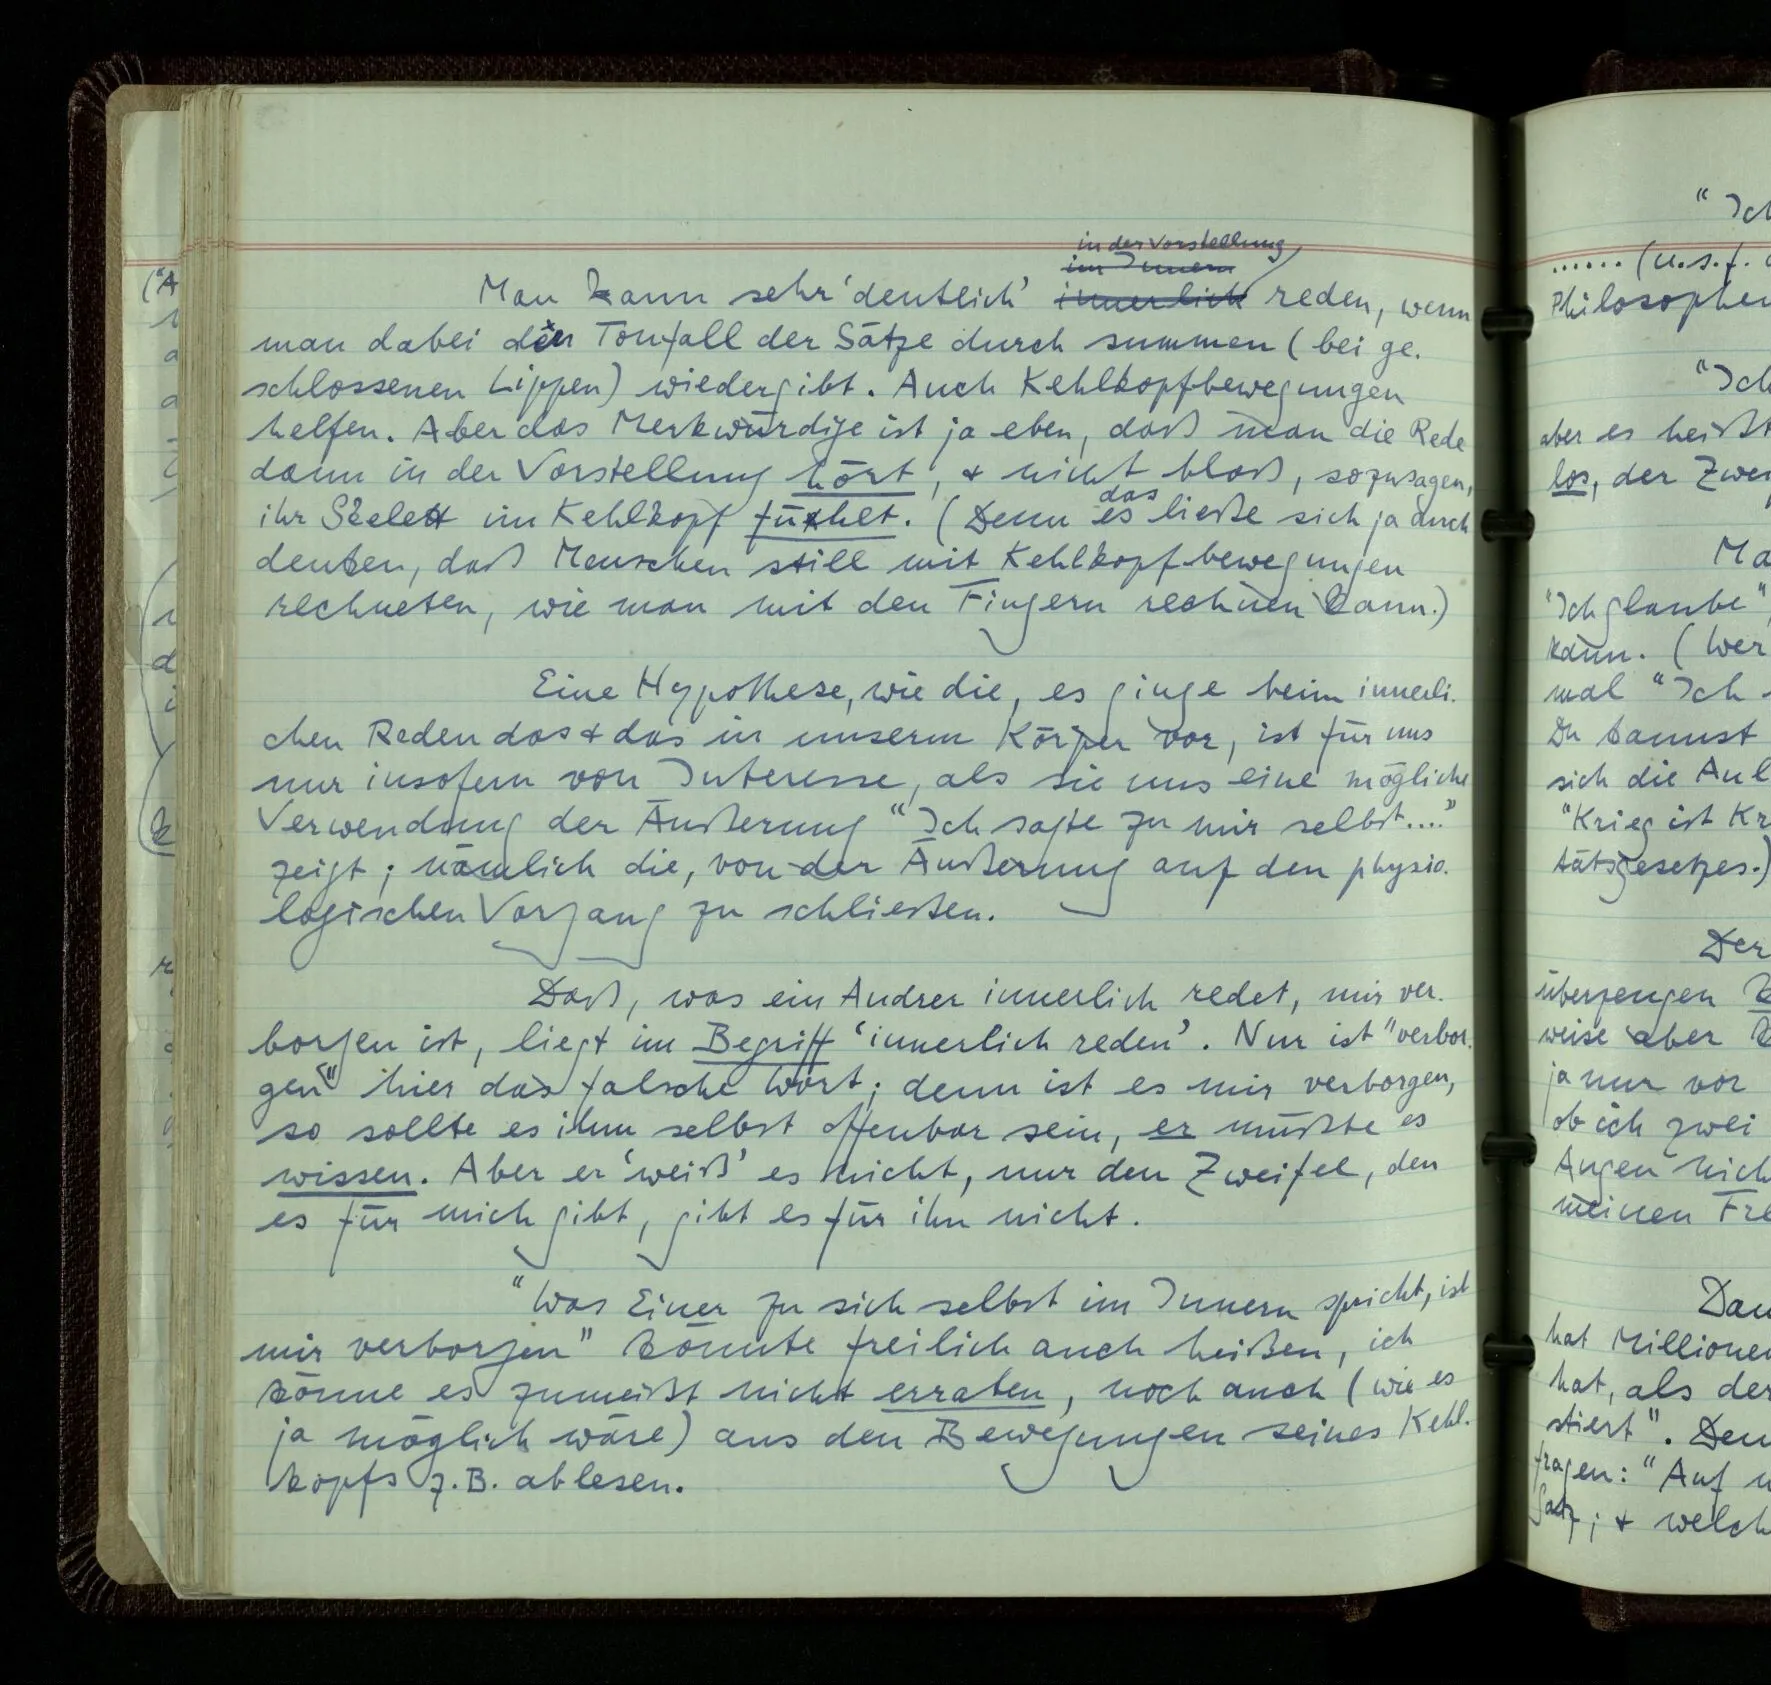 in der Vorstellung
im Innern
Man kann sehr 'deutlich' innerlich reden, wenn
man dabei den Tonfall der Sätze durch summen (bei ge-
schlossenen Lippen) wiedergibt. Auch Kehlkopfbewegungen
helfen. Aber das Merkwürdige ist ja eben, daß man die Rede
dann in der Vorstellung hört, & nicht bloß, sozusagen,
das
ihr Skelett im Kehlkopf fühlt. (Denn es ließe sich ja auch
denken, daß Menschen still mit Kehlkopfbewegungen
rechneten, wie man mit den Fingern rechnen kann.)
Eine Hypothese, wie die, es ginge beim innerli-
chen Reden das & das in unserm Körper vor, ist für uns
nur insofern von Interesse, als sie uns eine mögliche
Verwendung der Äußerung "Ich sagte zu mir selbst...."
zeigt; nämlich die, von der Äußerung auf den physio-
logischen Vorgang zu schließen.
Daß, was ein Andrer innerlich redet, mir ver-
borgen ist, liegt im Begriff 'innerlich reden'. Nur ist "verbor-
gen" hier das falsche Wort; denn ist es mir verborgen,
so sollte es ihm selbst offenbar sein, er müßte es
wissen. Aber er 'weiß' es nicht, nur den Zweifel, den
es für mich gibt, gibt es für ihn nicht.
"Was Einer zu sich selbst im Innern spricht, ist
mir verborgen" könnte freilich auch heißen, ich
könne es zumeist nicht erraten, noch auch (wie es
ja möglich wäre) aus den Bewegungen seines Kehl-
kopfs z.B. ablesen.
"Ich
...... (u.s.f.
Philosophen
"Ich
aber es heißt
los, der Zwei
Ma
"Ich glaube",
kann. (Wer
mal "Ich
Du kannst
sich die Anl
"Krieg ist Kr
tätsgesetzes.)
Der
überzeugen
weise aber
ja nur vor
ob ich zwei
Augen nich
meinen Fre
Dan
hat Millionen
hat, als der
stiert". Den
fragen: "Auf
Satz; & welch